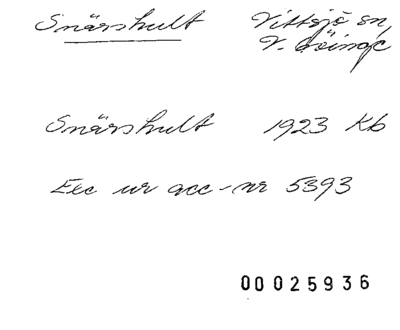 Snärshult Vittsjö sn,
V. Göinge
Snärshult 1923 Kb
Exc ur acc-nr 5393
00025936